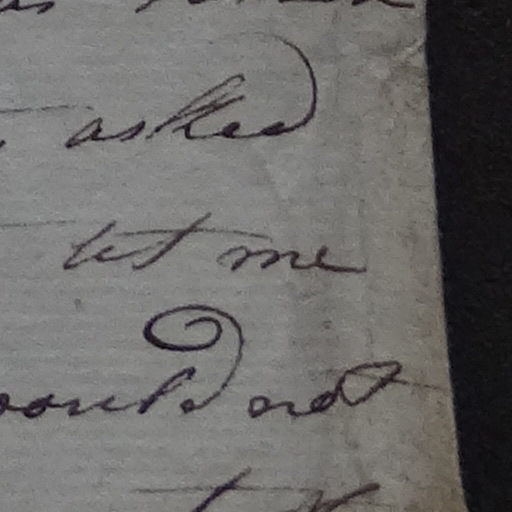 asked
let me
would not